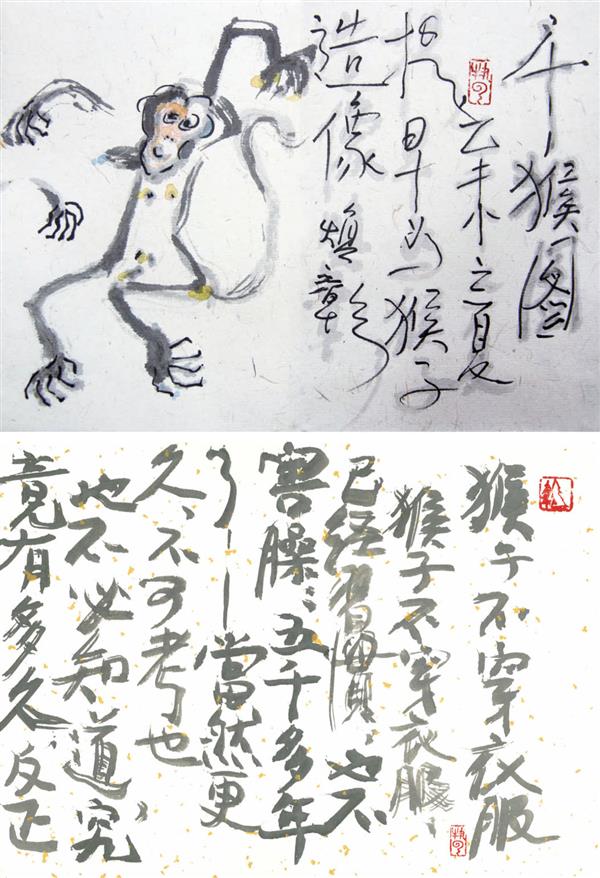 猴图
乙未之夏
猴子
造像 煥章
猴子不穿衣服
猴子不穿衣服、
已经習慣、也不
害臊、五千多年
了——當然更
久、不可考也
也不必知道究
竟有多久、反正